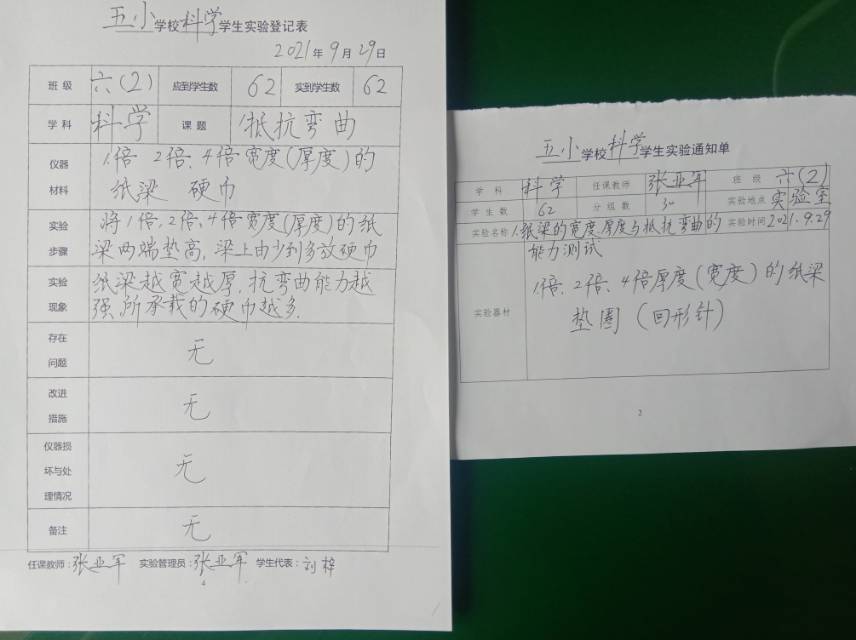 五小学校科学学生实验登记表
2021年9月29日
班级 六(2) 应到学生数 62 实到学生数 62
学科 科学 课题 1抵抗弯曲
仪器材料 1倍 2倍、4倍宽度(厚度)的
纸梁 硬币
实验步骤 将1倍,2倍、4倍宽度(厚度)的纸
梁两端垫高,梁上由少到多放硬币
实验现象 纸梁越宽越厚,抗弯曲能力越
强,所承载的硬币越多.
存在问题 无
改进措施 无
仪器损坏与处理情况 无
备注 无
任课教师:张亚军 实验管理员:张亚军 学生代表:刘梓
五小学校科学学生实验通知单
学科 科学 任课教师 张亚军 班级 六(2)
学生数 62 分组数 30 实验地点 实验室
实验名称 1.纸梁的宽度厚度与抵抗弯曲的 实验时间 2021.9.29
能力测试
实验器材 1倍、2倍、4倍厚度(宽度)的纸梁
垫圈(回形针)
2